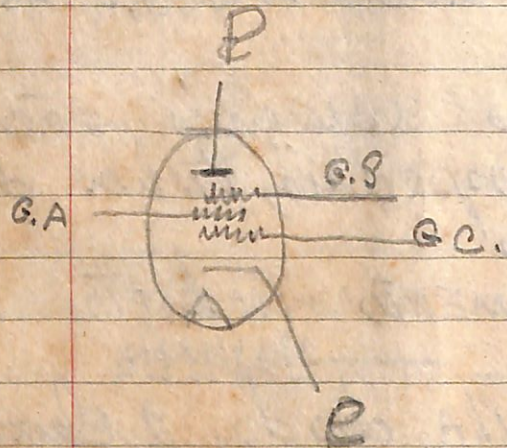 P
G.S
G.A
G C.
C